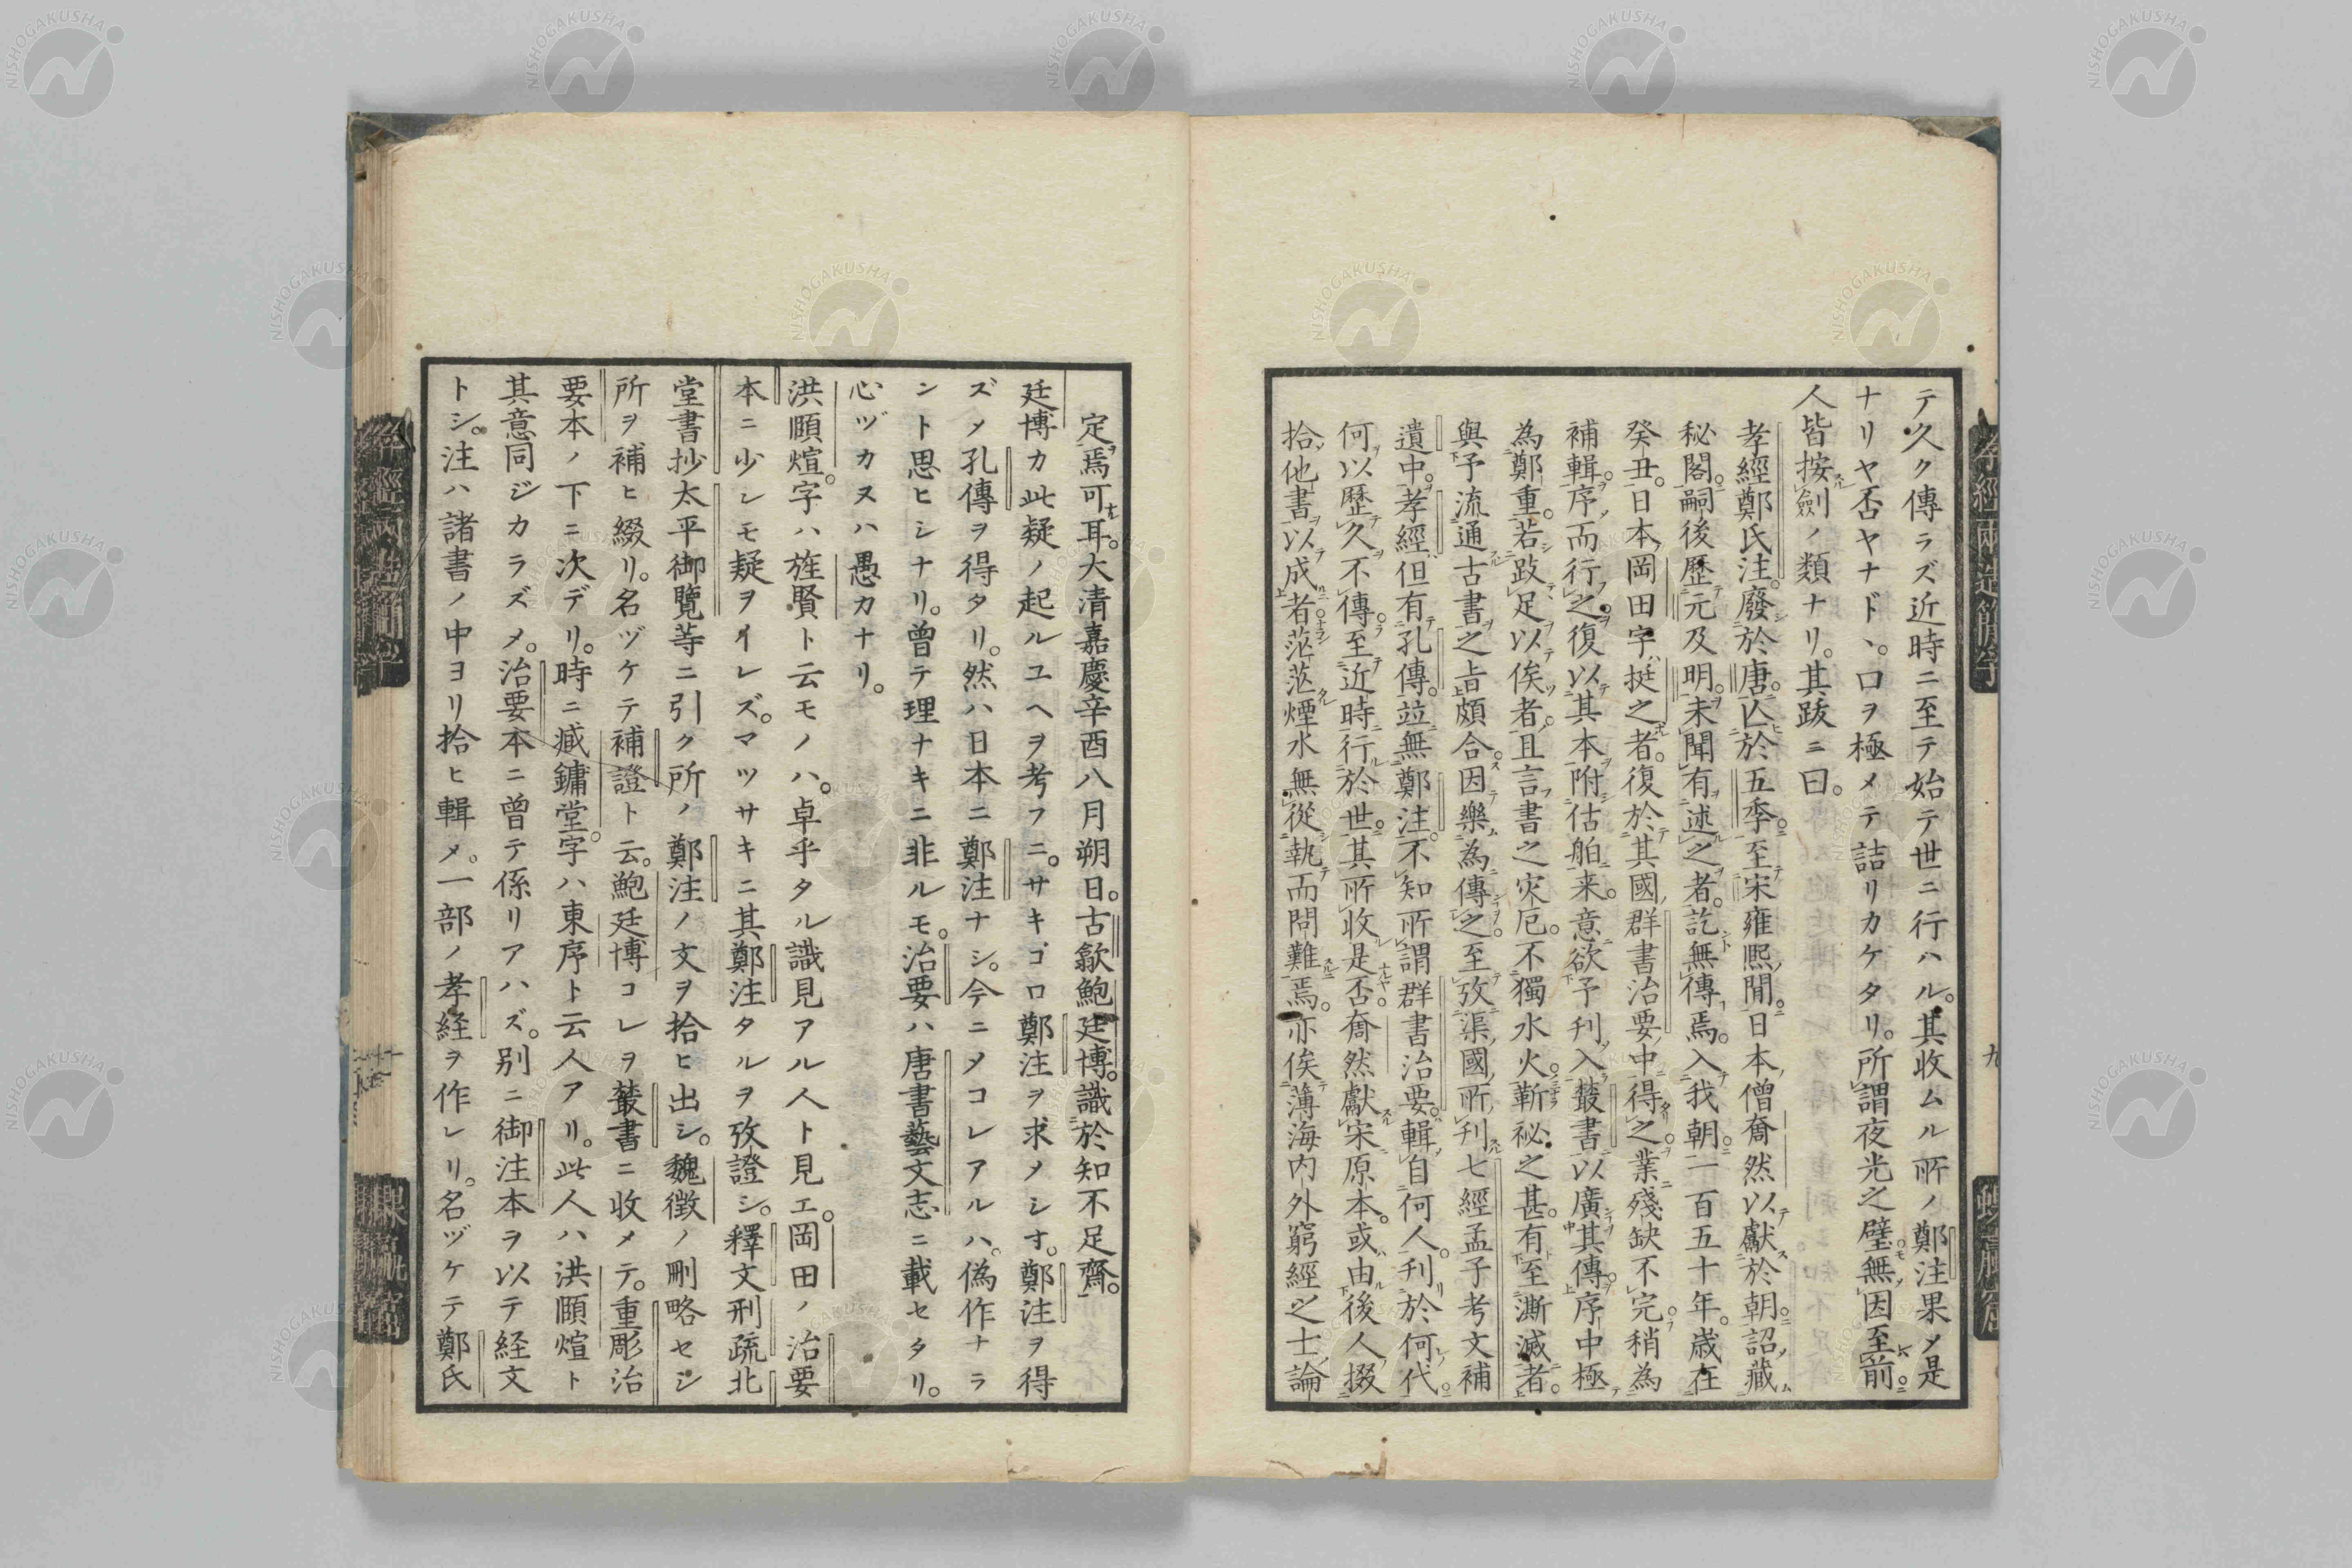 テ久ク傳ラズ近時ニ至テ始テ世ニ行ハル。其收ムル所ノ鄭注果〆是
ナリヤ否ヤナド、。口ヲ極メテ詰リカケタリ。所謂夜光之璧無因至前
人皆按劍ノ類ナリ。其跋ニ曰。
孝經鄭氏注。廢於唐。亾於五季。至宋雍熈閒。日本僧奝然以獻於朝。詔藏
秘閣。嗣後歷元及明。未聞有述之者。訖無傳焉。入我朝一百五十年。歲在
癸丑。日本岡田字挺之者。復於其國群書治要中得之。業殘缺不完。稍為
補輯。序而行之。復以其本附估舶来。意欲予刋入叢書以廣其傳。序中極
為鄭重。若跂足以俟者。且言書之灾厄。不獨水火。靳祕之甚。有至澌滅者。
與予流通古書之㫖頗合。因樂為傳之。至攷渠國所刋七經孟子考文補
遺中。孝經但有孔傳。竝無鄭注。不知所謂群書治要。輯自何人。刋於何代。
何以歷久不傳。至近時行於世。其所收是否奝然獻宋原本。或由後人掇
拾他書以成者。茫茫煙水無從執而問難焉。亦俟薄海内外窮經之士論
定焉可耳。大清嘉慶辛酉八月朔日。古歙鮑廷博。識於知不足齋。
廷博カ此疑ノ起ルユヘヲ考フニ。サキゴロ鄭注ヲ求メシす。鄭注ヲ得
ズ〆孔傳ヲ得タリ。然ハ日本ニ鄭注ナシ。今ニ〆コレアルハ。偽作ナラ
ント思ヒシナリ。曾テ理ナキニ非ルモ。治要ハ唐書藝文志ニ載セタリ。
心ヅカヌハ愚カナリ。
洪頤煊。字ハ旌賢ト云モノハ。卓乎タル識見アル人ト見エ。岡田ノ治要
本ニ少シモ疑ヲイレズ。マツサキニ其鄭注タルヲ攷證シ。釋文刑疏北
堂書抄太平御覽等ニ引ク所ノ鄭注ノ文ヲ拾ヒ出シ。魏徴ノ刪略セシ
所ヲ補ヒ綴リ。名ヅケテ補證ト云。鮑廷博コレヲ叢書ニ收メテ。重彫治
要本ノ下ニ次デリ。時ニ臧鏞堂。字ハ東序ト云人アリ。此人ハ洪頤煊ト
其意同ジカラズ〆。治要本ニ曾テ係リアハズ。別ニ御注本ヲ以テ経文
トシ。注ハ諸書ノ中ヨリ拾ヒ輯メ。一部ノ孝経ヲ作レリ。名ヅケテ鄭氏
九